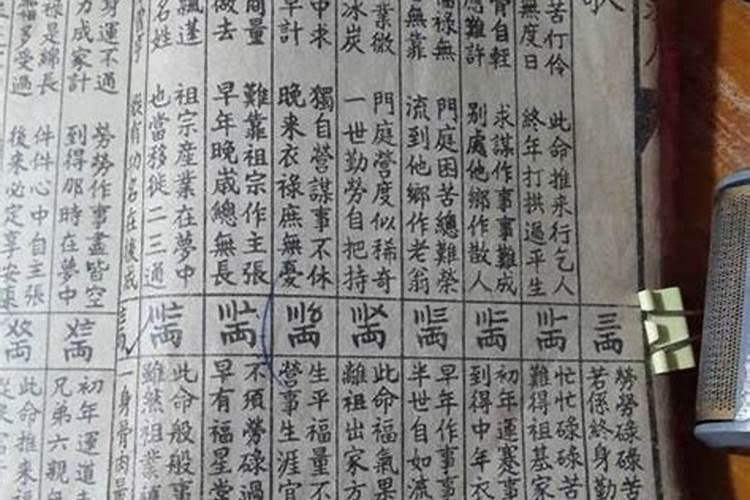 苦仃伶 此命推来行乞人
無度日 終年打拱過平生
骨自輕 求謀作事事難成
應難許 別處他鄉作散人
福祿無 門庭困苦總難榮
無靠 流到他鄉作老翁
業微 門庭營度似稀奇
冰炭 一世勤勞自把持
中求 獨自營謀事不休
早計 晚来衣祿庶無憂
商量 難靠祖宗作主張
做去 早年晚歲總無長
飄蓬 祖宗產業在夢中
名姓 也當移徙二三通
身運不通 勞勞作事盡皆空
力成家計 到得那時在夢中
祿是綿長 件件心中自主張
福多受過 後来必定享安
三両
〣一両
〣二両
〣三両
〣〤両
〣〥両
〣〦両
〣〧両
勞勞碌碌苦
若係終身勤
忙忙碌碌苦
難得祖基家
初年運蹇事
到得中年衣
早年作事事
半世自如流
此命福氣果
離祖出家方
生平福量不
營事生涯宜
不須勞碌過
早有福星常
此命般般事
雖然祖業
一身骨肉
初年運道
兄弟六親
此命推来福